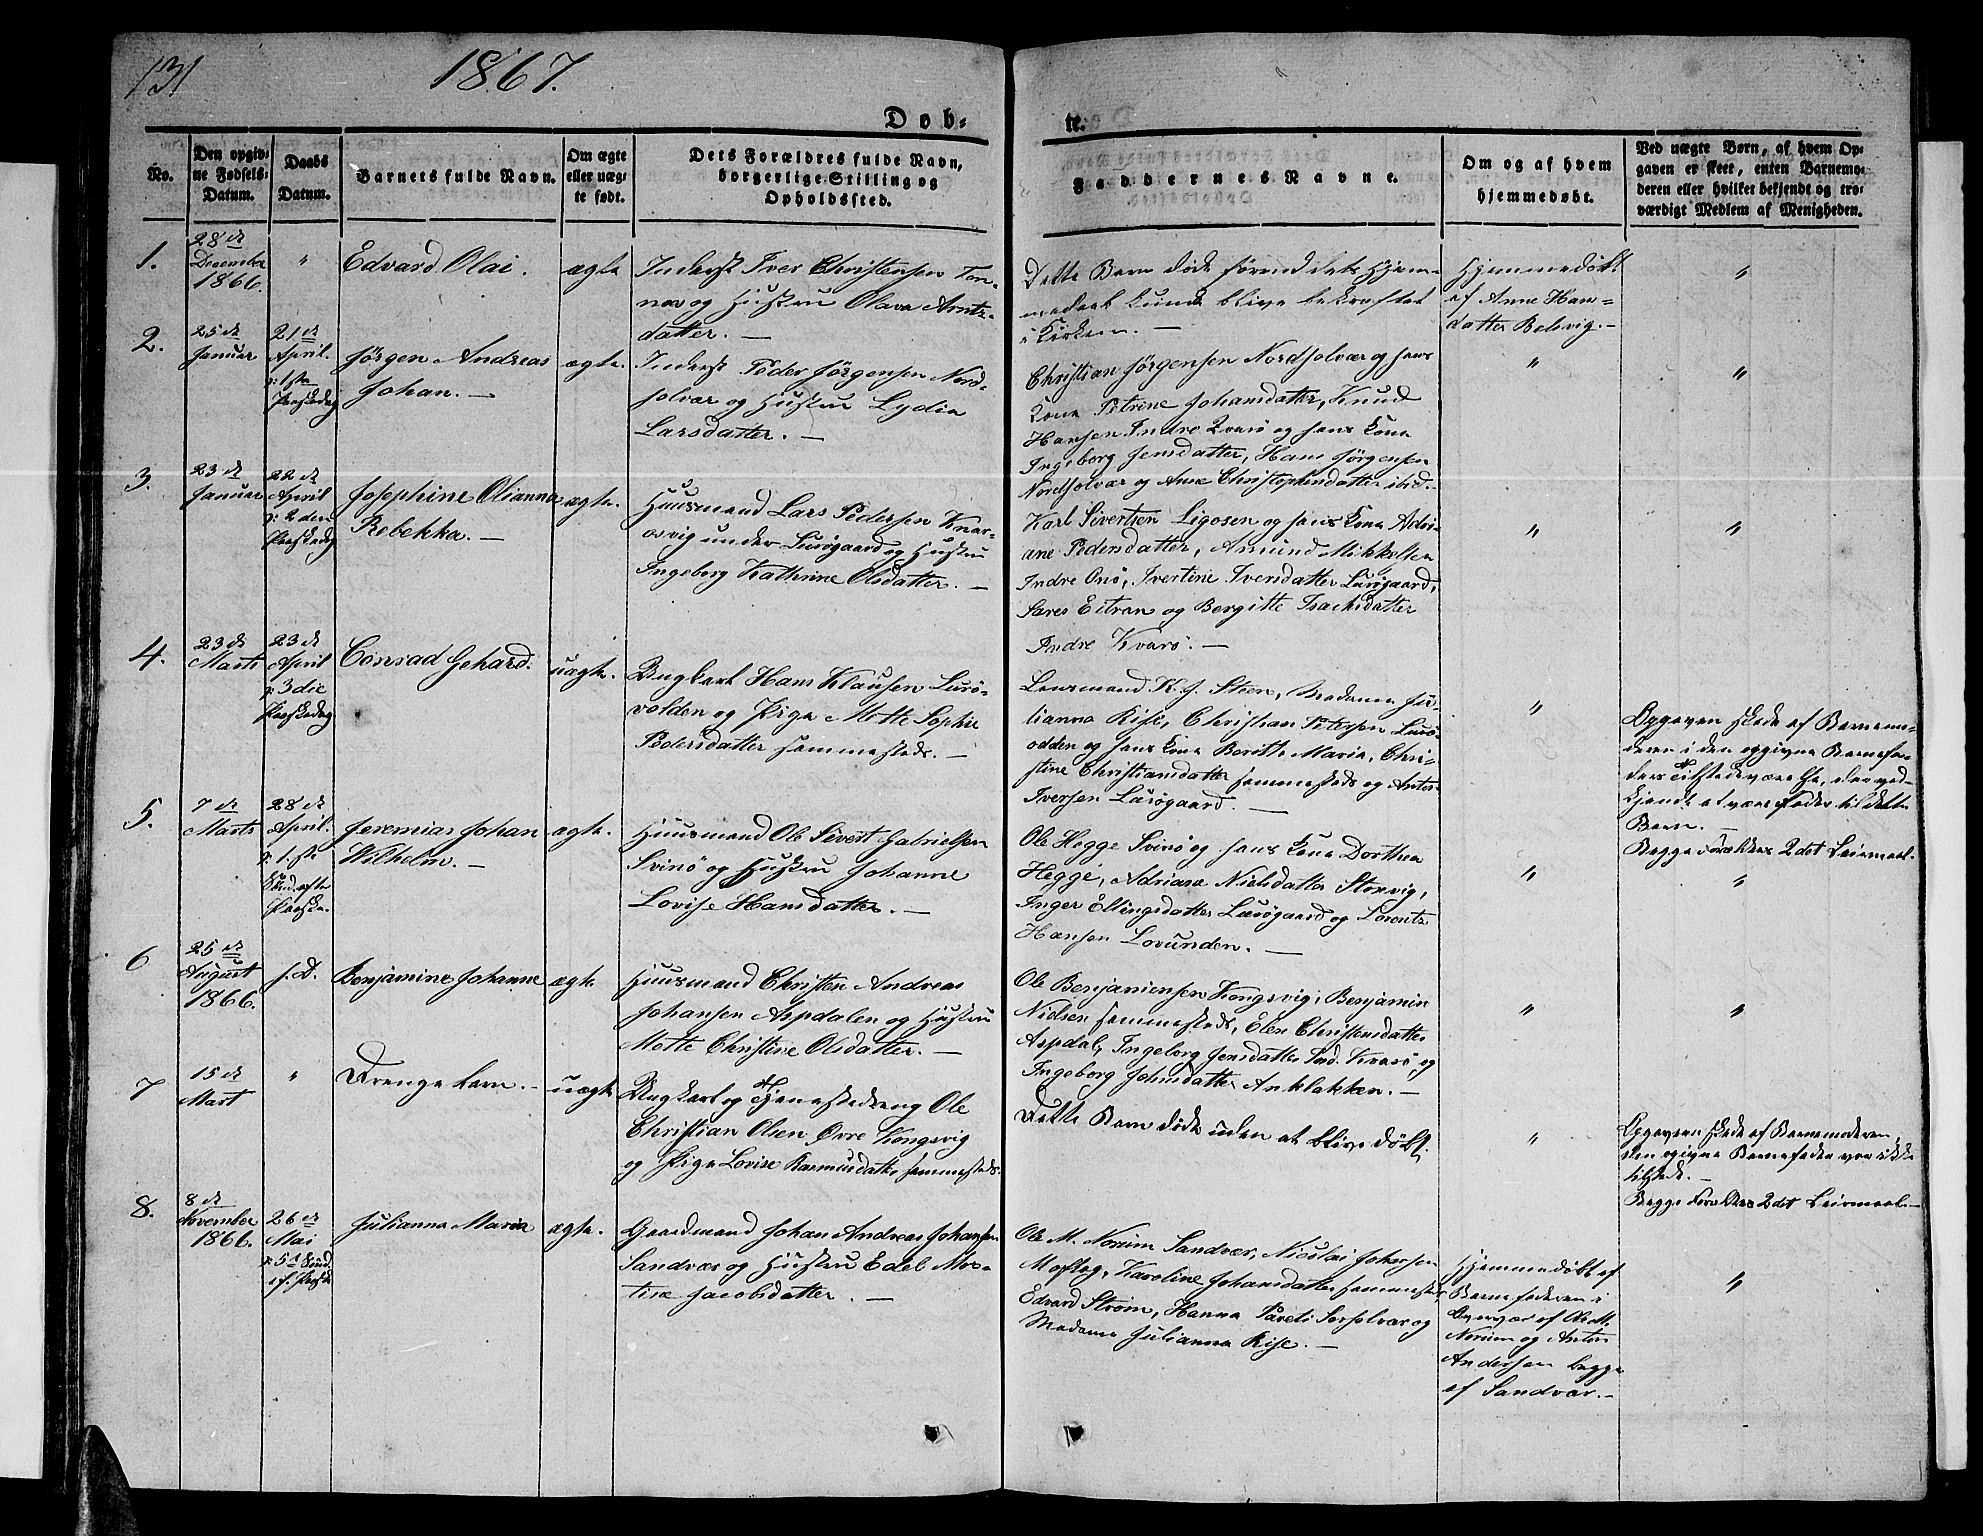 131
1867.
Døb=
te.
No.
Den opgiv=
ne Fødsels=
Datum.
Daabs
Datum.
Barnets fulde Navn.
Om ægte
eller uæg=
te født.
Dets Forældres fulde Navn,
borgerlige Stilling og
Opholdssted.
Faddernes Navne.
Om og af hvem
hjemmedøbt.
Ved uægte Børn, af hvem Op=
gaven er skeet, enten Barnemo=
deren eller hvilket bekjendt og tro=
værdigt Medlem af Menigheden.
1.
28de
December
1866.
"
Edvard Olai.
ægte
Inderst Iver Christensen Ton=
nes og Hustru Olava Arntz=
datter. —
Dette Barn døde førend dets Hjem=
medaab kunde blive bekræftet
i Kirken. —
Hjemmedøbt
af Anne Hans=
datter Belsvig. —
"
2.
25de
Januar
21de
April.
: 1ste
Paaskedag
Jørgen Andreas
Johan. —
ægte.
Inderst Peder Jørgensen Nord=
solvær og Hustru Lydia
Larsdatter. —
Christian Jørgensen Nordsolvær og hans
Kone Petrine Johansdatter, Knud
Hansen Indre Qvarø og hans Kone
Ingeborg Jensdatter, Hans Jørgensen
Nordsolvær og Ane Christophersdatter ibid.
"
"
3.
23de
Januar
22de
April
: 2den
Paaskedag
Josephine Olianna
Rebekka. —
ægte.
Huusmand Lars Pedersen Knar=
osvig under Lurøgaard og Hustru
Ingeborg Kathrine Olsdatter. —
Karl Sivertsen Ligosen og hans Kone Adri=
ane Pedersdatter, Amund Mikkelsen
Indre Onø, Ivertine Iversdatter Lurøgaard,
Lares Eitran og Bergitte Isachsdatter
Indre Kvarø. —
"
"
4.
23de
Marts
23de
April
: 3die
Paaskedag
Conrad Gehard.
uægte.
Ungkarl Hans Klausen Lurø=
volden og Pige Mette Sophie
Pedersdatter sammesteds. —
Lensmand K. J. Steen, Madame Ju=
lianna Rise, Christian Petersen Lurø=
odden og hans Kone Berithe Maria, Chri=
stine Christiansdatter sammesteds og Anton
Iversen Lurøgaard. —
"
Opgaven skede af Barnemo=
deren i den opgivne Barnefa=
ders Tilstedeværelse, der ved=
kjendte at være Fader til dette
Barn. —
Begge Forældres 2det Leiermaal.
5.
7de
Marts
28de
April.
: 1ste
Sønd. efter
Paaske.
Jeremias Johan
Wilhelm. —
ægte.
Huusmand Ole Sivert Gabrielsen
Svinø og Hustru Johanne
Lovise Hansdatter. —
Ole Hegge Svinø og hans Kone Dorthea
Hegge, Adriane Nielsdatter Storvig,
Inger Ellingsdatter Lurøgaard og Lorentz
Hansen Lovunden. —
"
"
6
25de
August
1866.
s. D.
Benjamine Johanne
ægte
Huusmand Christen Andreas
Johansen Aspdalen og Hustru
Mette Christine Olsdatter. —
Ole Benjaminsen Kongsvig, Benjamin
Nielsen sammesteds, Elen Christensdatter
Aspdal, Ingeborg Jensdatter Ind. Kvarø og
Ingeborg Johnsdatter Anklakken. —
"
"
7
15de
Mart
"
Drengebarn. —
uægte
Ungkarl og Tjenestedreng Ole
Christian Olsen Øvre Kongsvig
og Pige Lovise Rasmusdatter sammesteds.
Dette Barn døde uden at blive døbt.
"
Opgaven skede af Barnemoderen,
den opgivne Barnefader var ikke
tilstede. —
Begge Forældres 2det Leiermaal. —
8.
8de
November
1866.
26de
Mai
: 5te Sønd.
ef. Paaske
Julianna Maria
ægte.
Gaardmand Johan Andreas Johansen
Sandvær og Hustru Edel Mar=
tine Jacobsdatter. —
Ole M. Norum Sandvær, Nicolai Johansen
Moflag, Karoline Johansdatter sammesteds,
Edvard Strøm, Hanna Pareli Sørsolvær og
Madame Julianna Rise. —
Hjemmedøbt af
Barnefaderen i
Overvær af Ole M.
Norum og Anton
Andersen begge
af Sandvær. —
"